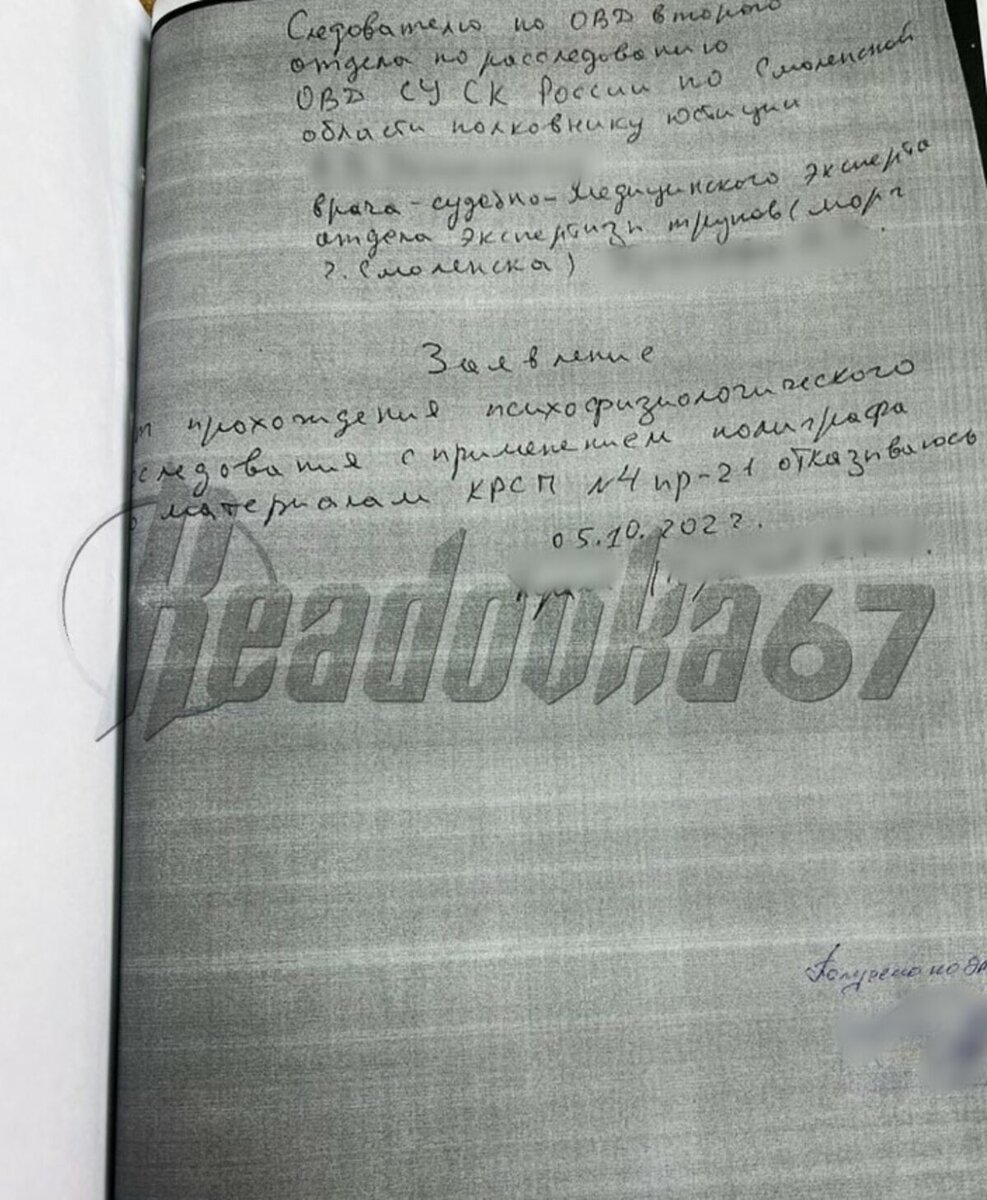 Следователю по ОВД второго
отдела по расследованию
ОВД СУ СК России по Смоленской
области полковнику юстиции
врача-судебно-медицинского эксперта
отдела экспертизы трупов (морг
г. Смоленска)
Заявление
т прохождения психофизиологического
следования с применением полиграфа
о материалам КРСП №4 пр-21 отказываюсь
05.10.2022.
Readovka67
Получено по